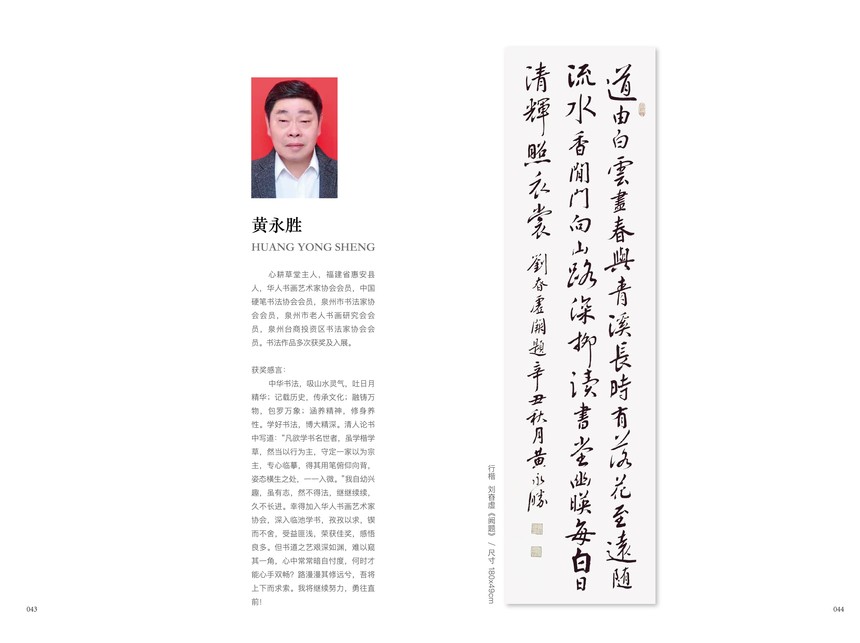 黄永胜
HUANG YONG SHENG
心耕草堂主人，福建省惠安县
人，华人书画艺术家协会会员，中国
硬笔书法协会会员，泉州市书法家协
会会员，泉州市老人书画研究会会
员，泉州台商投资区书法家协会会
员。书法作品多次获奖及入展。
获奖感言：
中华书法，吸山水灵气，吐日月
精华；记载历史，传承文化；融铸万
物，包罗万象；涵养精神，修身养
性。学好书法，博大精深。清人论书
中写道：“凡欲学书名世者，虽学楷学
草，然当以行为主，守定一家以为宗
主，专心临摹，得其用笔俯仰向背，
姿态横生之处，一一入微。”我自幼兴
趣，虽有志，然不得法，继继续续，
久不长进。幸得加入华人书画艺术家
协会，深入临池学书，孜孜以求，锲
而不舍，受益匪浅，荣获佳奖，感悟
良多。但书道之艺艰深如渊，难以窥
其一角，心中常常暗自忖度，何时才
能心手双畅？路漫漫其修远兮，吾将
上下而求索。我将继续努力，勇往直
前！
043
行楷 刘昚虚《阙题》 / 尺寸 180x49cm
道由白雲盡春與青溪長時有落花至遠随
流水香閒門向山路深柳讀書堂幽暎每白日
清輝照衣裳 劉昚虛闕題辛丑秋月黄永勝
044